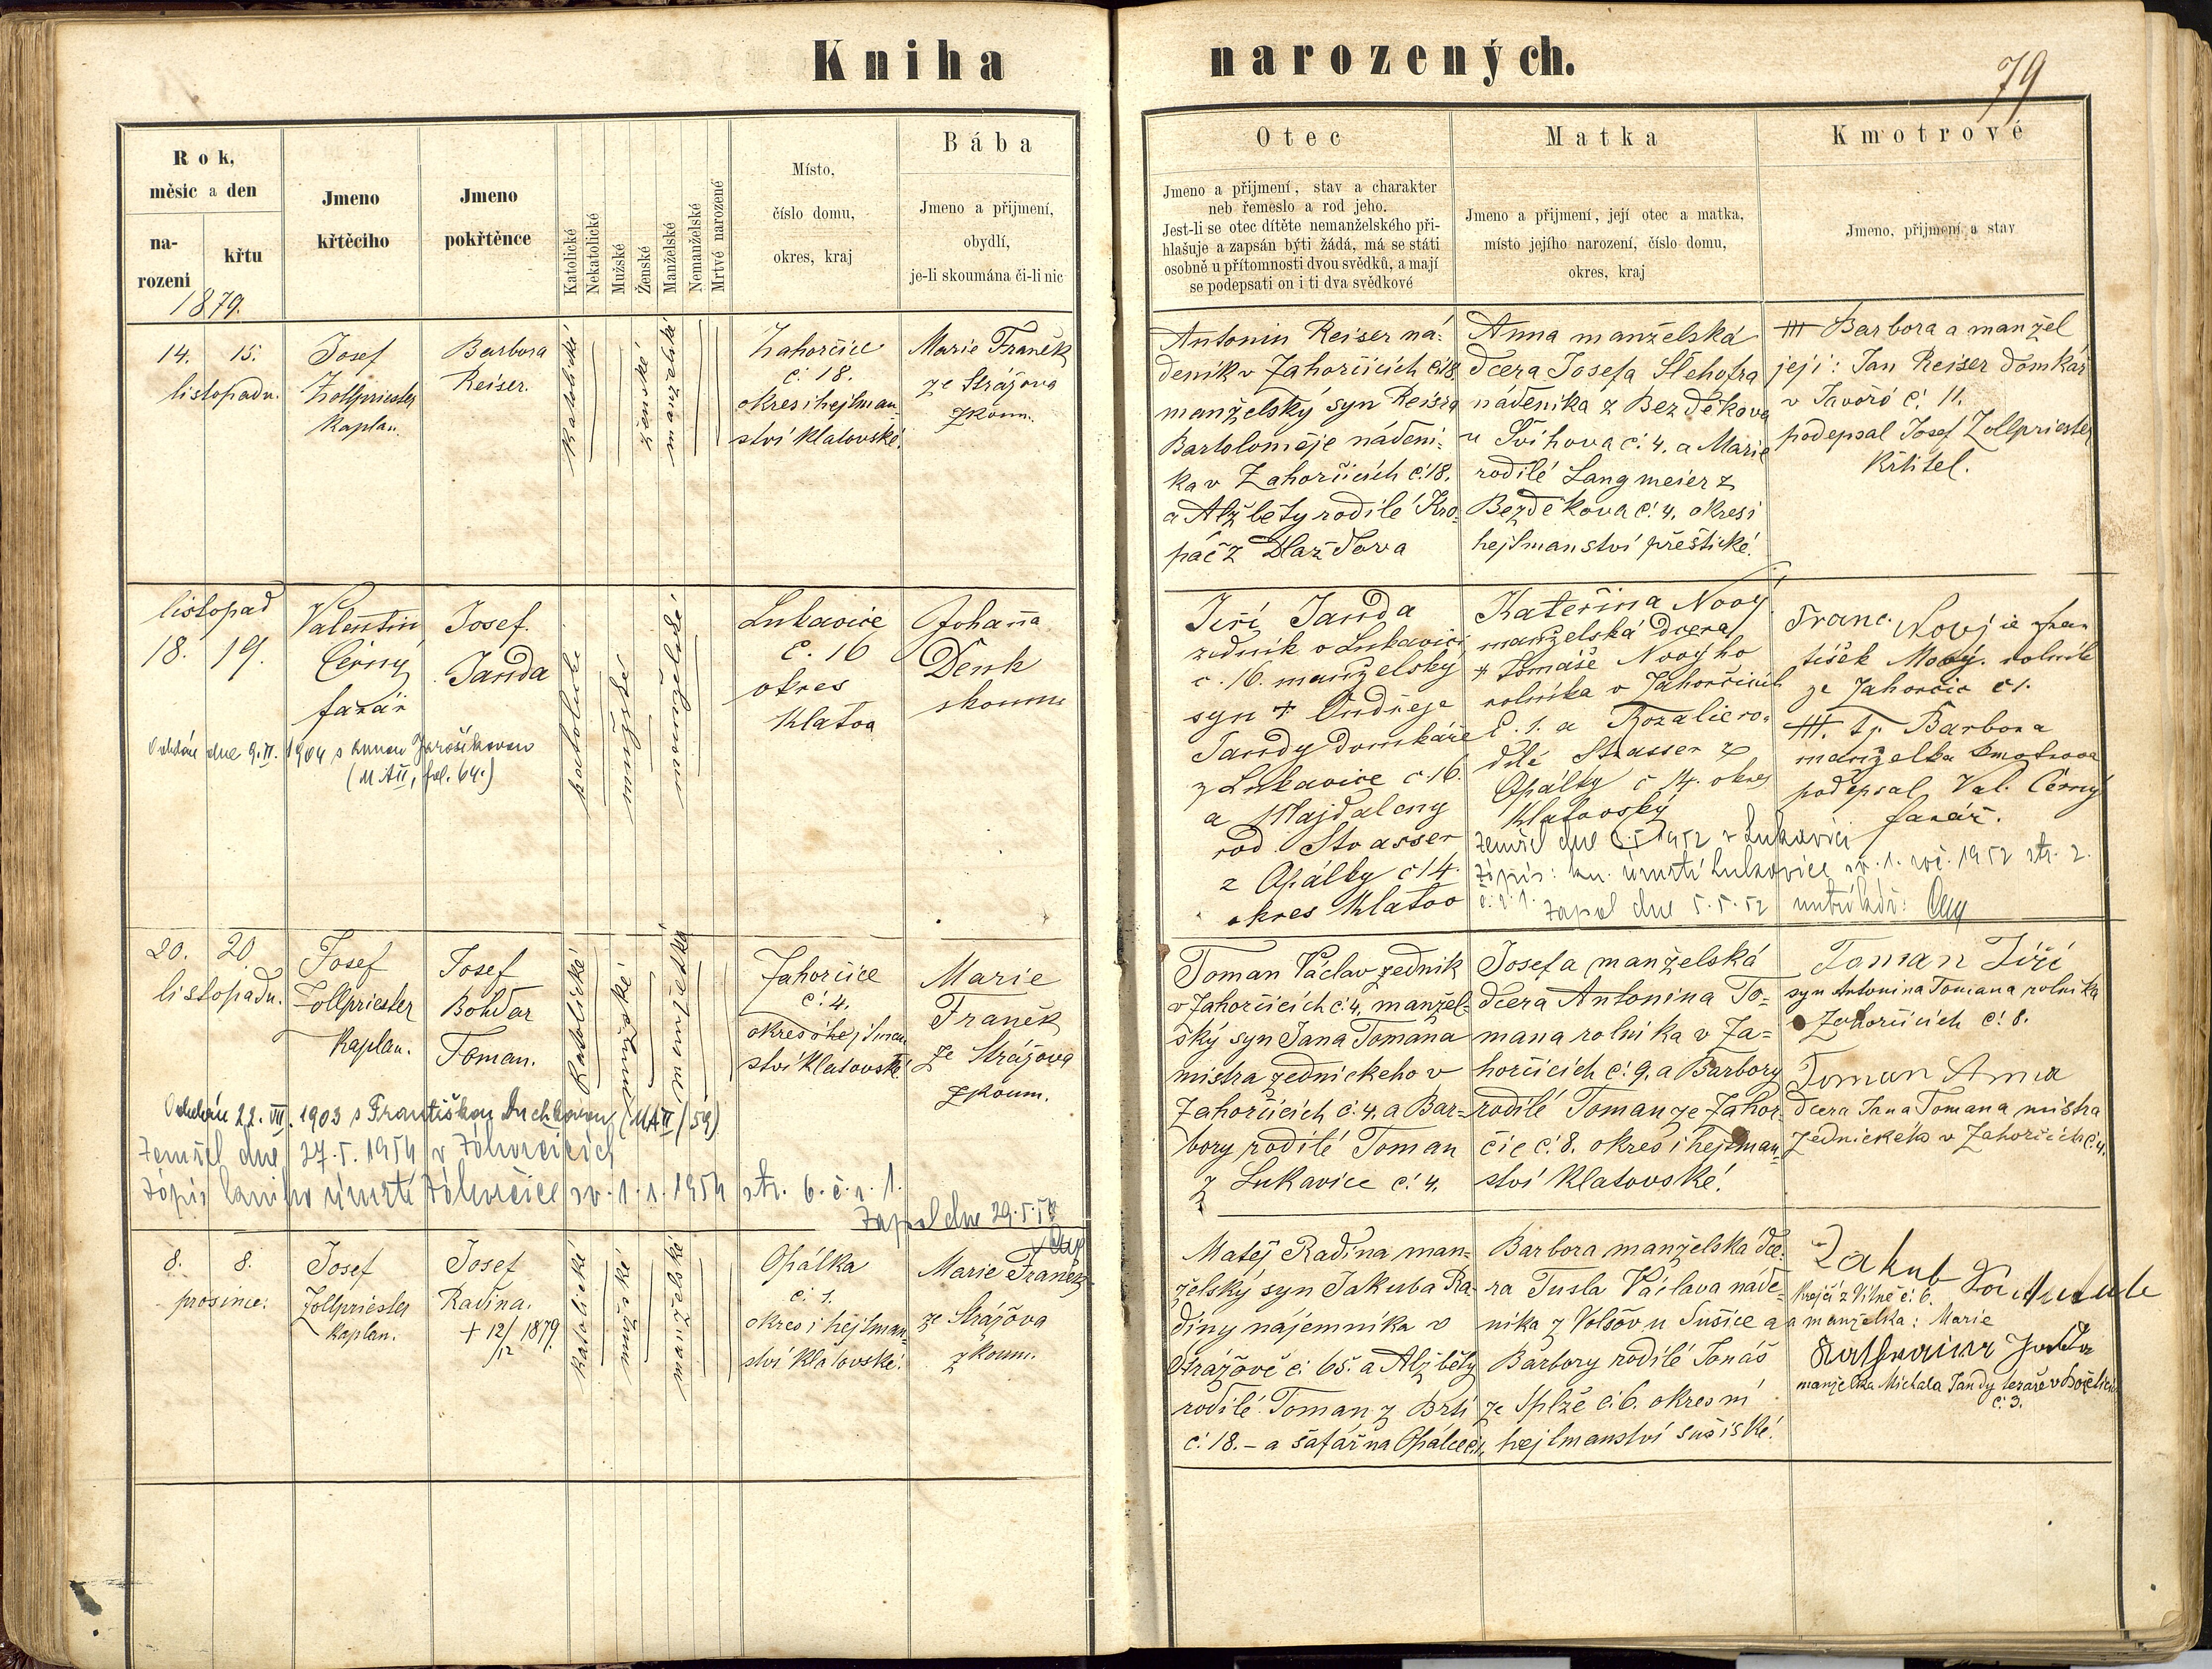 Kniha narozených.
79
Rok,
měsíc a den
na-
rození
křtu
1879.
Jmeno
křtěcího
Jmeno
pokřtěnce
Katolické
Nekatolické
Mužské
Ženské
Manželské
Nemanželské
Mrtvě narozené
Místo,
číslo domu,
okres, kraj
Bába
Jmeno a přijmení,
obydlí,
je-li skoumána či-li nic
Otec
Jmeno a přijmení, stav a charakter
neb řemeslo a rod jeho.
Jest-li se otec dítěte nemanželského při-
hlašuje a zapsán býti žádá, má se státi
osobně u přítomnosti dvou svědků, a mají
se podepsati on i ti dva svědkové
Matka
Jmeno a přijmení, její otec a matka,
místo jejího narození, číslo domu,
okres, kraj
Kmotrové
Jmeno, přijmení a stav
14. 15.
listopadu.
Josef
Zollpriester
Kaplan.
Barbora
Reiser.
Katolické
ženské
manželské
Zahorčice
č. 18.
okres i hejtman-
ství Klatovské.
Marie Franěk
ze Strážova
zkoum.
Antonin Reiser ná-
deník v Zahorčicích č. 18.
manželský syn Reisra
Bartoloměje nádení-
ka v Zahorčicích č. 18.
a Alžběty rodilé Kro-
páč z Dlažďova
Anna manželská
dcera Josefa Slehofra
nádeníka z Bezděkova
u Švihova č. 4. a Marie
rodilé Langmeier z
Bezděkova č. 4. okres i
hejtmanství přeštické.
+++ Barbora a manžel
její: Jan Reiser domkář
v Javoří č. 11.
podepsal Josef Zollpriester
Křtitel.
listopad
18. 19.
Valentin
Černý
farář
Josef
Janda
katolické
mužské
manželské
Lukavice
č. 16
okres
Klatov
Johanna
Denk
skoum
Jiří Janda
zedník v Lukavici
č. 16. manželský
syn + Ondřeje
Jandy domkáře
z Lukavice č. 16.
a Majdaleny
rod. Strasser
z Opálky č 14.
okres Klatov
Kateřina Nový
manželská dcera
+ Tomáše Nového
rolníka v Zahorčicích
č. 1. a Rozalie ro-
dilé Strasser z
Opálky č 14. okres
Klatovský
Franc. Nový je Fran-
tišek Nový. rolník
ze Zahorčic č 1.
+++. tj. Barbora
manželka kmotrova
podepsal Val. Černý
farář.
Oddán dne 9. II. 1904 s Annou Jarošíkovou
(M AII, fol. 64.)
zemřel dne 1952 v Lukavici
Zápis: kn. úmrtí Lukavice sv. 1. roč. 1952 str. 2.
č. ř. 1. zapsal dne 5. 5. 52
20. 20
listopadu.
Josef
Zollpriester
Kaplan.
Josef
Bohdar
Toman.
Katolické
mužské
manželské
Zahorčice
č. 4.
okres i hejtman-
ství Klatovské
Marie
Franěk
ze Strážova
zkoum.
Toman Václav zedník
v Zahorčicích č. 4. manžel-
ský syn Jana Tomana
mistra zednickeho v
Zahorčicích č. 4. a Bar-
bory rodilé Toman
z Lukavice č. 4.
Josefa manželská
dcera Antonina To-
mana rolníka v Za-
horčicích č. 9. a Barbory
rodilé Toman ze Zahor-
čic č. 8. okres i hejtman-
ství Klatovské.
Toman Jiří
syn Antonina Tomana rolníka
Zahorčicích č. 8.
Toman Anna
dcera Jana Tomana mistra
zednického v Zahorčicích č. 4.
Oddán 22. VII. 1903 s Františkou Duchkovou (MAII/59)
Zemřel dne 27. 5. 1954 v Zahorčicích
Zápis kniha úmrtí Zahorčice sv. 1. r. 1954 str. 6. č. ř. 1.
Zapsal dne 29. 5. 54
8. 8.
prosince.
Josef
Zollpriester
Kaplan.
Josef
Radina.
+ 12/12 1879.
Katolické
mužské
manželské
Opálka
č. 1.
okres i hejtman-
ství Klatovské.
Marie Franěk
ze Strážova
zkoum.
Matěj Radina man-
želský syn Jakuba Ra-
diny nájemníka v
Strážově č. 65. a Alžběty
rodilé Toman z Brti
č. 18. - a šafář na Opálce č. 1.
Barbora manželská dce-
ra Tusla Václava náde-
níka z Volšov u Sušice a
Barbory rodilé Tonáš
ze Splže č. 6. okresní
hejtmanství sušiské.
Jakub
Krejčí z Vitně č. 6.
a manželka: Marie
Katharina Janda
manželka Michala Jandy tesaře v
č. 3.